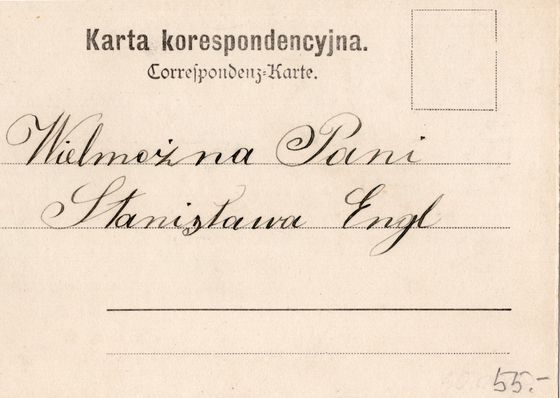 Karta korespondencyjna.
Correſpondenz-Karte.
Wielmożna Pani
Stanisława Engl
55.-